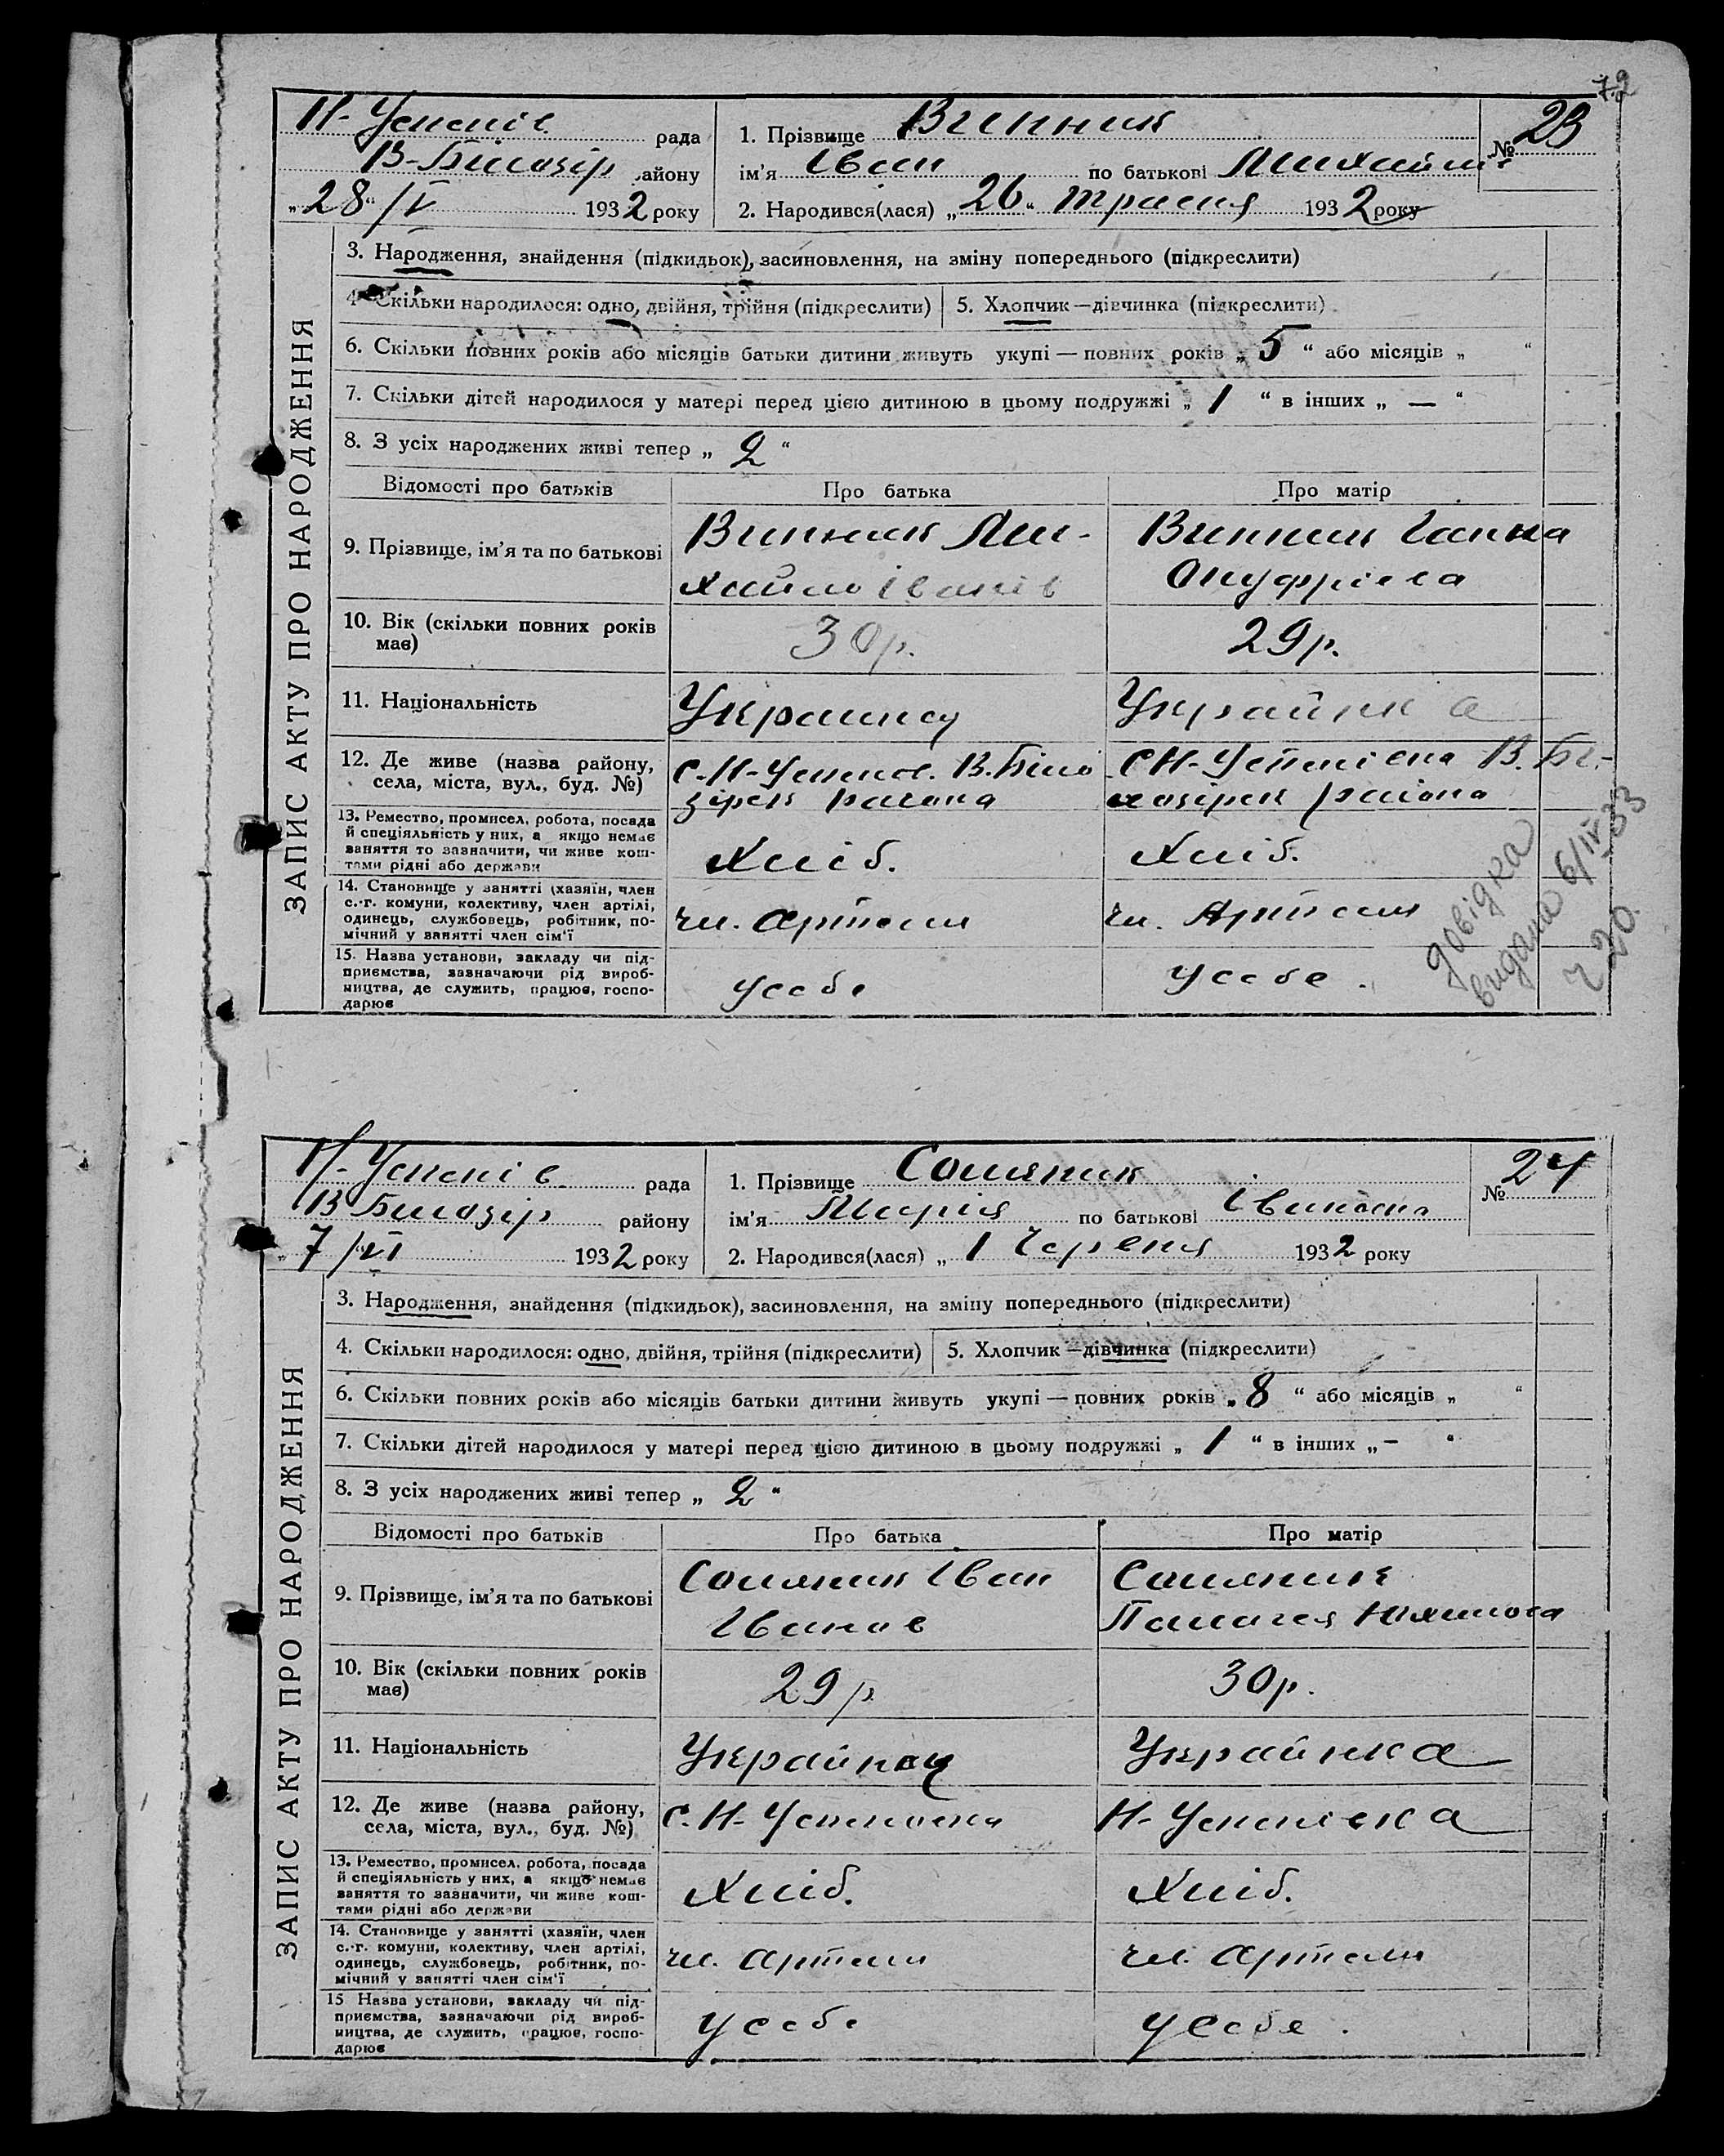 72
Н-Успенів рада
В-Білозір району
„28“ /V 1932 року
1. Прізвище Винник
ім’я Іван по батькові Михайлів
2. Народився(лася) „26“ травня 1932 року
№ 23
ЗАПИС АКТУ ПРО НАРОДЖЕННЯ
3. Народження, знайдення (підкидьок), засиновлення, на зміну попереднього (підкреслити)
4. Скільки народилося: одно, двійня, трійня (підкреслити)
5. Хлопчик—дівчинка (підкреслити)
6. Скільки повних років або місяців батьки дитини живуть укупі — повних років „ 5 “ або місяців „ “
7. Скільки дітей народилося у матері перед цією дитиною в цьому подружжі „ 1 “ в інших „ — “
8. З усіх народжених живі тепер „ 2 “
Відомості про батьків Про батька Про матір
9. Прізвище, ім’я та по батькові
Винник Ми-
хайло Іванів
Винник Ганна
Онуфріева
10. Вік (скільки повних років
має)
30 р.
29 р.
11. Національність
Украинец
Українка
12. Де живе (назва району,
села, міста, вул., буд. №)
с. Н-Успенов. В. Біло
зірск района
С Н-Успенівка В. Бі-
лозірск района
13. Ремество, промисел, робота, посада
й спеціяльність у них, а якщо немає
заняття то зазначити, чи живе кош-
тами рідні або держави
Хліб.
Хліб.
14. Становище у занятті (хазяїн, член
с.-г. комуни, колективу, член артілі,
одинець, службовець, робітник, по-
мічний у занятті член сім’ї
чл. артели
чл. Артели
15. Назва установи, закладу чи під-
приємства, зазначаючи рід вироб-
ництва, де служить, працює, госпо-
дарює
усебе
усебе.
довідка
видана 6/IV 33
ч 20.
Н-Успенів. рада
В Билозір району
„7“ /VI 1932 року
1. Прізвище
ім’я Марія по батькові Іванівна
2. Народився(лася) „ 1 Червня 1932 року
№ 24
ЗАПИС АКТУ ПРО НАРОДЖЕННЯ
3. Народження, знайдення (підкидьок), засиновлення, на зміну попереднього (підкреслити)
4. Скільки народилося: одно, двійня, трійня (підкреслити)
5. Хлопчик—дівчинка (підкреслити)
6. Скільки повних років або місяців батьки дитини живуть укупі — повних років „ 8 “ або місяців „ “
7. Скільки дітей народилося у матері перед цією дитиною в цьому подружжі „ 1 “ в інших „ — “
8. З усіх народжених живі тепер „ 2 “
Відомості про батьків Про батька Про матір
9. Прізвище, ім’я та по батькові
Іван
Іванов
Палагея
10. Вік (скільки повних років
має)
29 р
30 р.
11. Національність
Українец
Українка
12. Де живе (назва району,
села, міста, вул., буд. №)
с. Н-Успеновка
Н-Успенівка
13. Ремество, промисел, робота, посада
й спеціяльність у них, а якщо немає
заняття то зазначити, чи живе кош-
тами рідні або держави
Хліб.
Хліб.
14. Становище у занятті (хазяїн, член
с.-г. комуни, колективу, член артілі,
одинець, службовець, робітник, по-
мічний у занятті член сім’ї
чл. артели
чл. артели
15 Назва установи, закладу чи під-
приємства, зазначаючи рід вироб-
ництва, де служить, працює, госпо-
дарює
усебе
усебе.